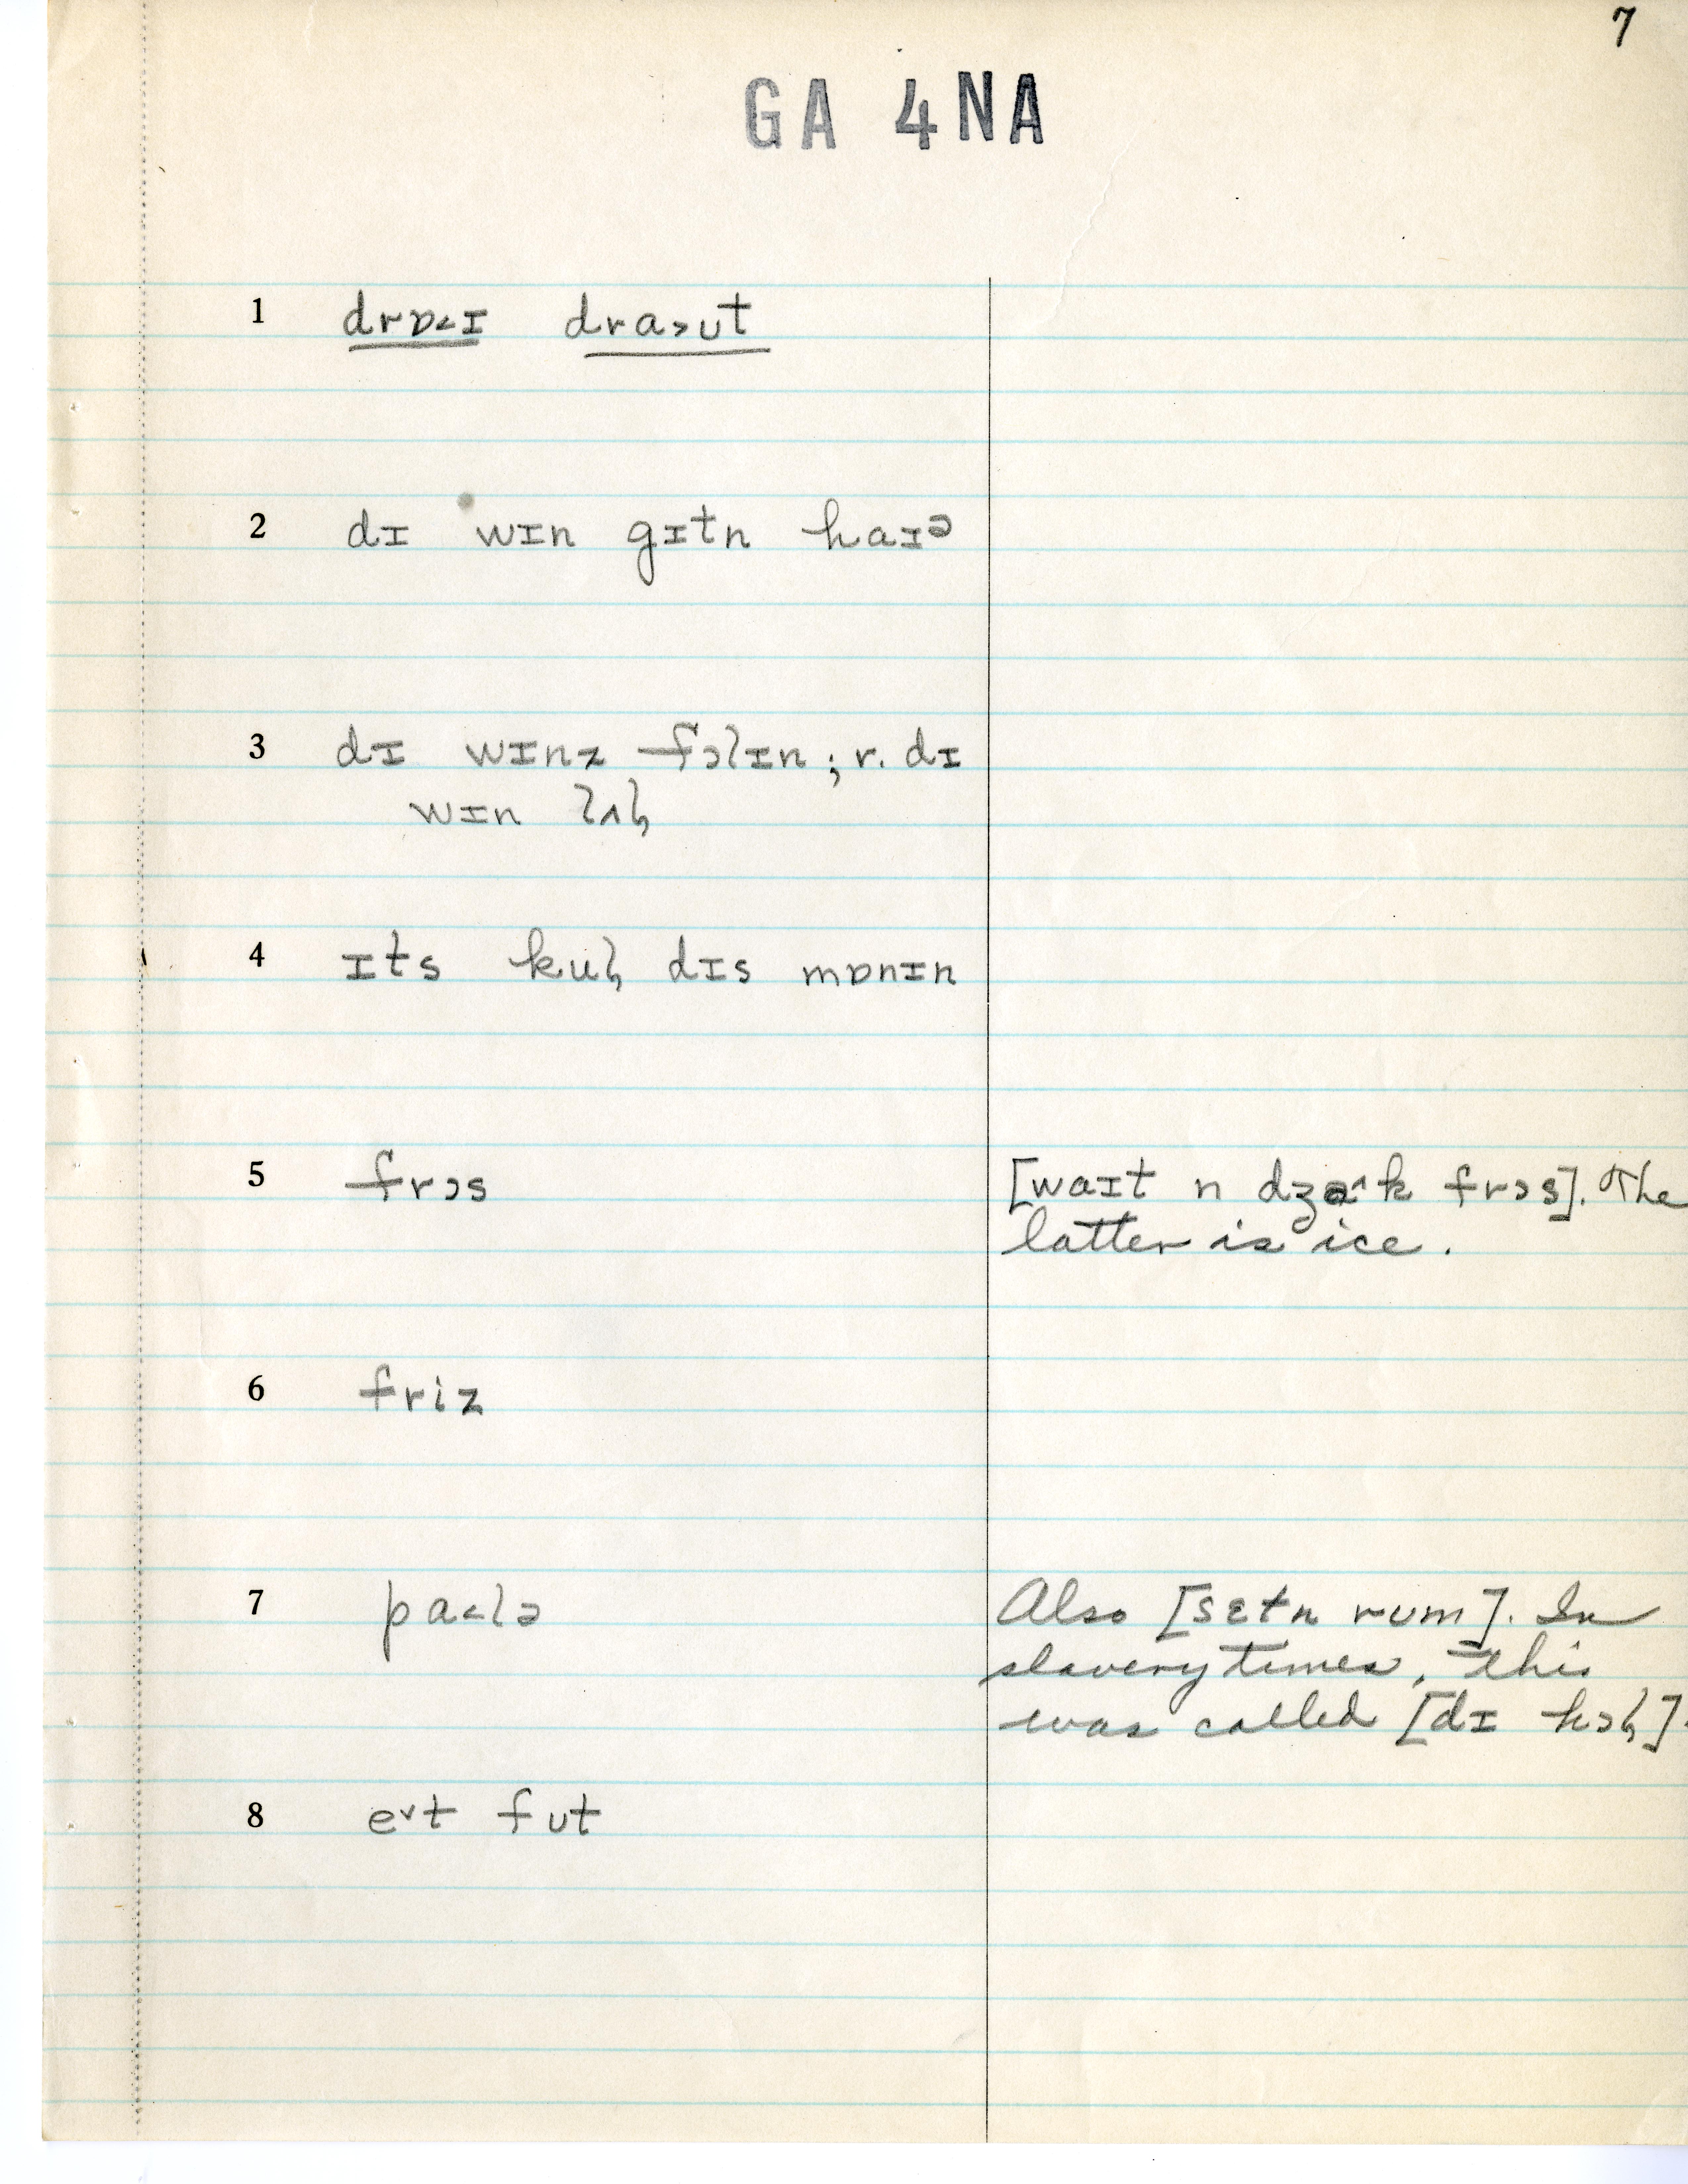 7
GA 4NA
1 drɒ˂ɪ dra˃ʊt
2 dɪ wɪn gɪtn haɪə
3 dɪ wɪnz fɔlɪn; r. dɪ
wɪn lʌl̡
4 ɪts kul̡ dɪs mɒnɪn
5 frɔs [waɪt n dʒa˄k frɔs]. The
latter is ice.
6 friz
7 pa˂lə Also [sɛtn rum]. In
slavery times, this
was called [dɪ hɔl̡].
8 e˅t fʊt